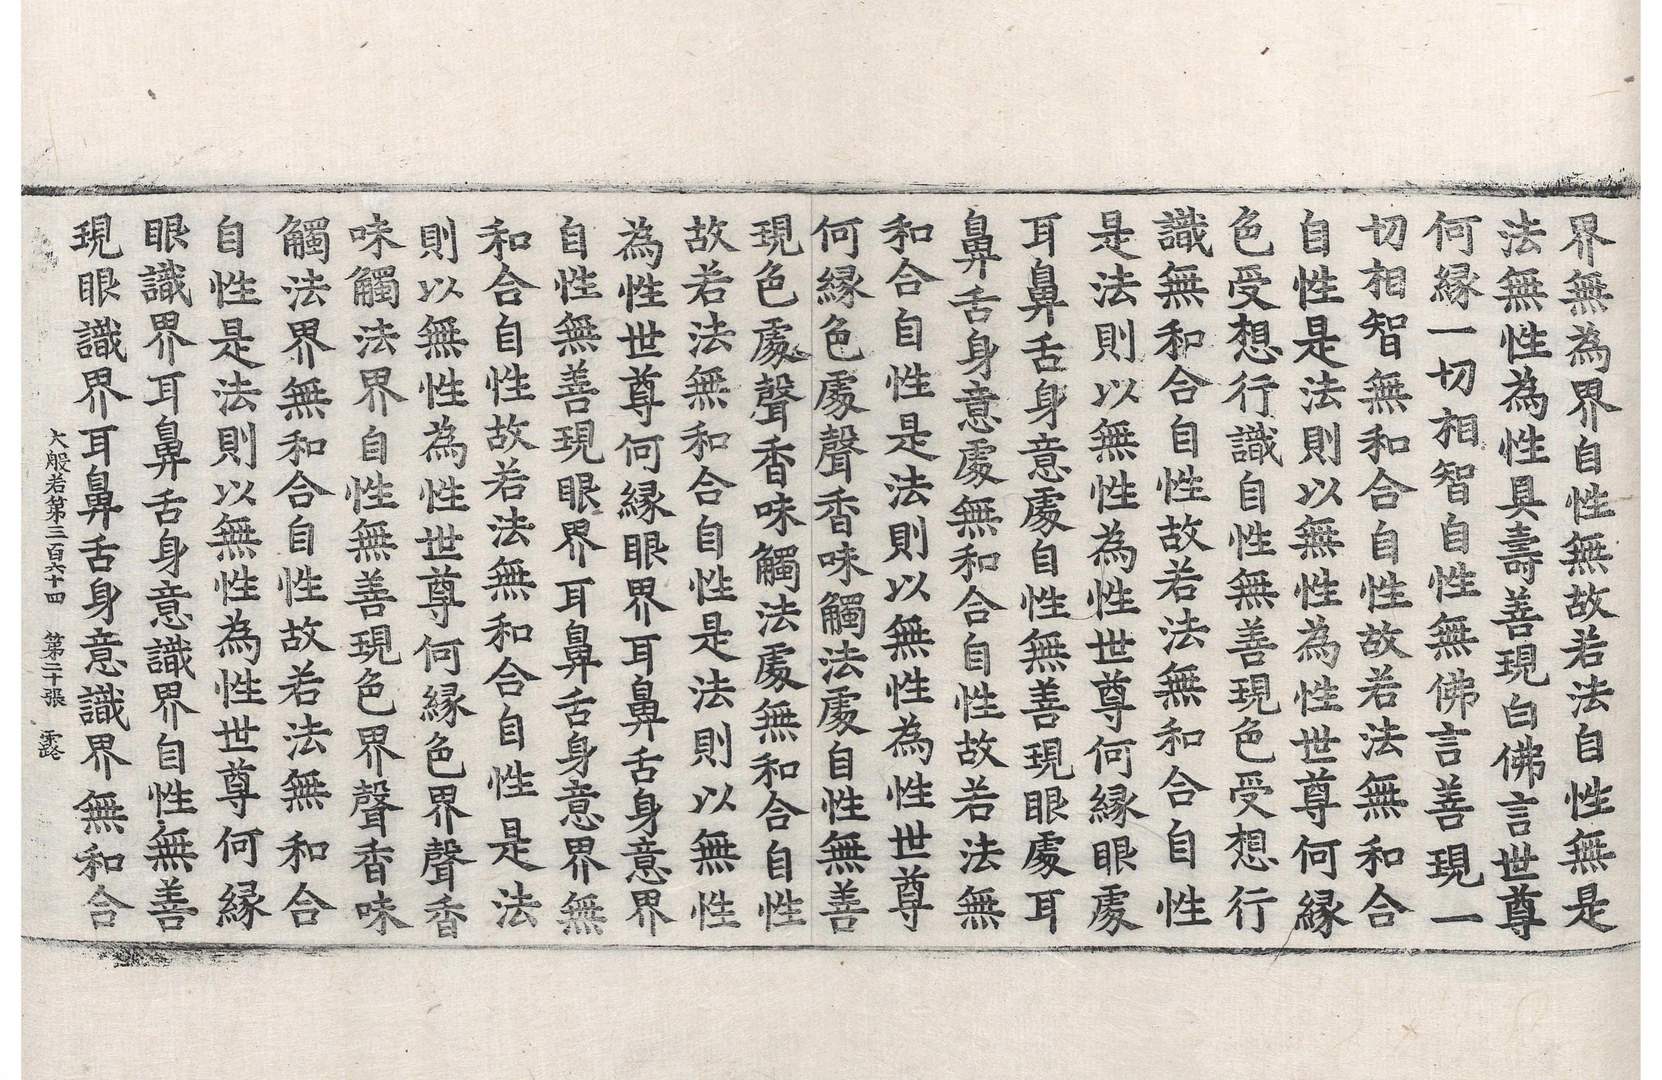 界無為界自性無故若法自性無是
法無性為性具壽善現白佛言世尊
何縁一切相智自性無佛言善現一
切相智無和合自性故若法無和合
自性是法則以無性為性世尊何縁
色受想行識自性無善現色受想行
識無和合自性故若法無和合自性
是法則以無性為性世尊何縁眼處
耳鼻舌身意處自性無善現眼處耳
鼻舌身意處無和合自性故若法無
和合自性是法則以無性為性世尊
何縁色處聲香味觸法處自性無善
現色處聲香味觸法處無和合自性
故若法無和合自性是法則以無性
為性世尊何縁眼界耳鼻舌身意界
自性無善現眼界耳鼻舌身意界無
和合自性故若法無和合自性是法
則以無性為性世尊何縁色界聲香
味觸法界自性無善現色界聲香味
觸法界無和合自性故若法無和合
自性是法則以無性為性世尊何縁
眼識界耳鼻舌身意識界自性無善
現眼識界耳鼻舌身意識界無和合
大般若第三百六十四 第二十張 露